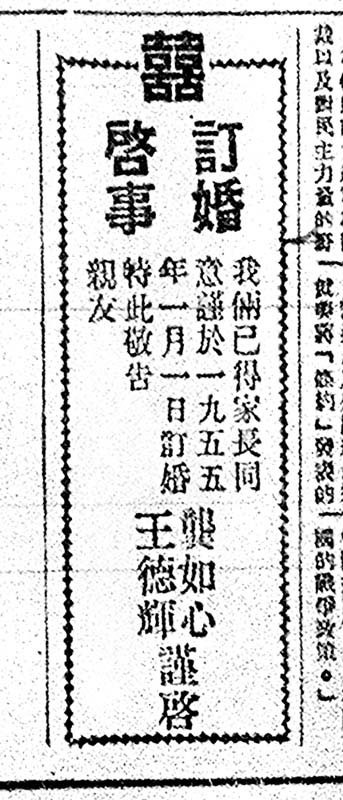 以及對民主力量的
條約」發表的
國的戰爭政策。」
囍
訂婚
啓事
我倆已得家長同
意謹於一九五五
年一月一日訂婚
特此敬告
親友
龔如心
王德輝
謹啓